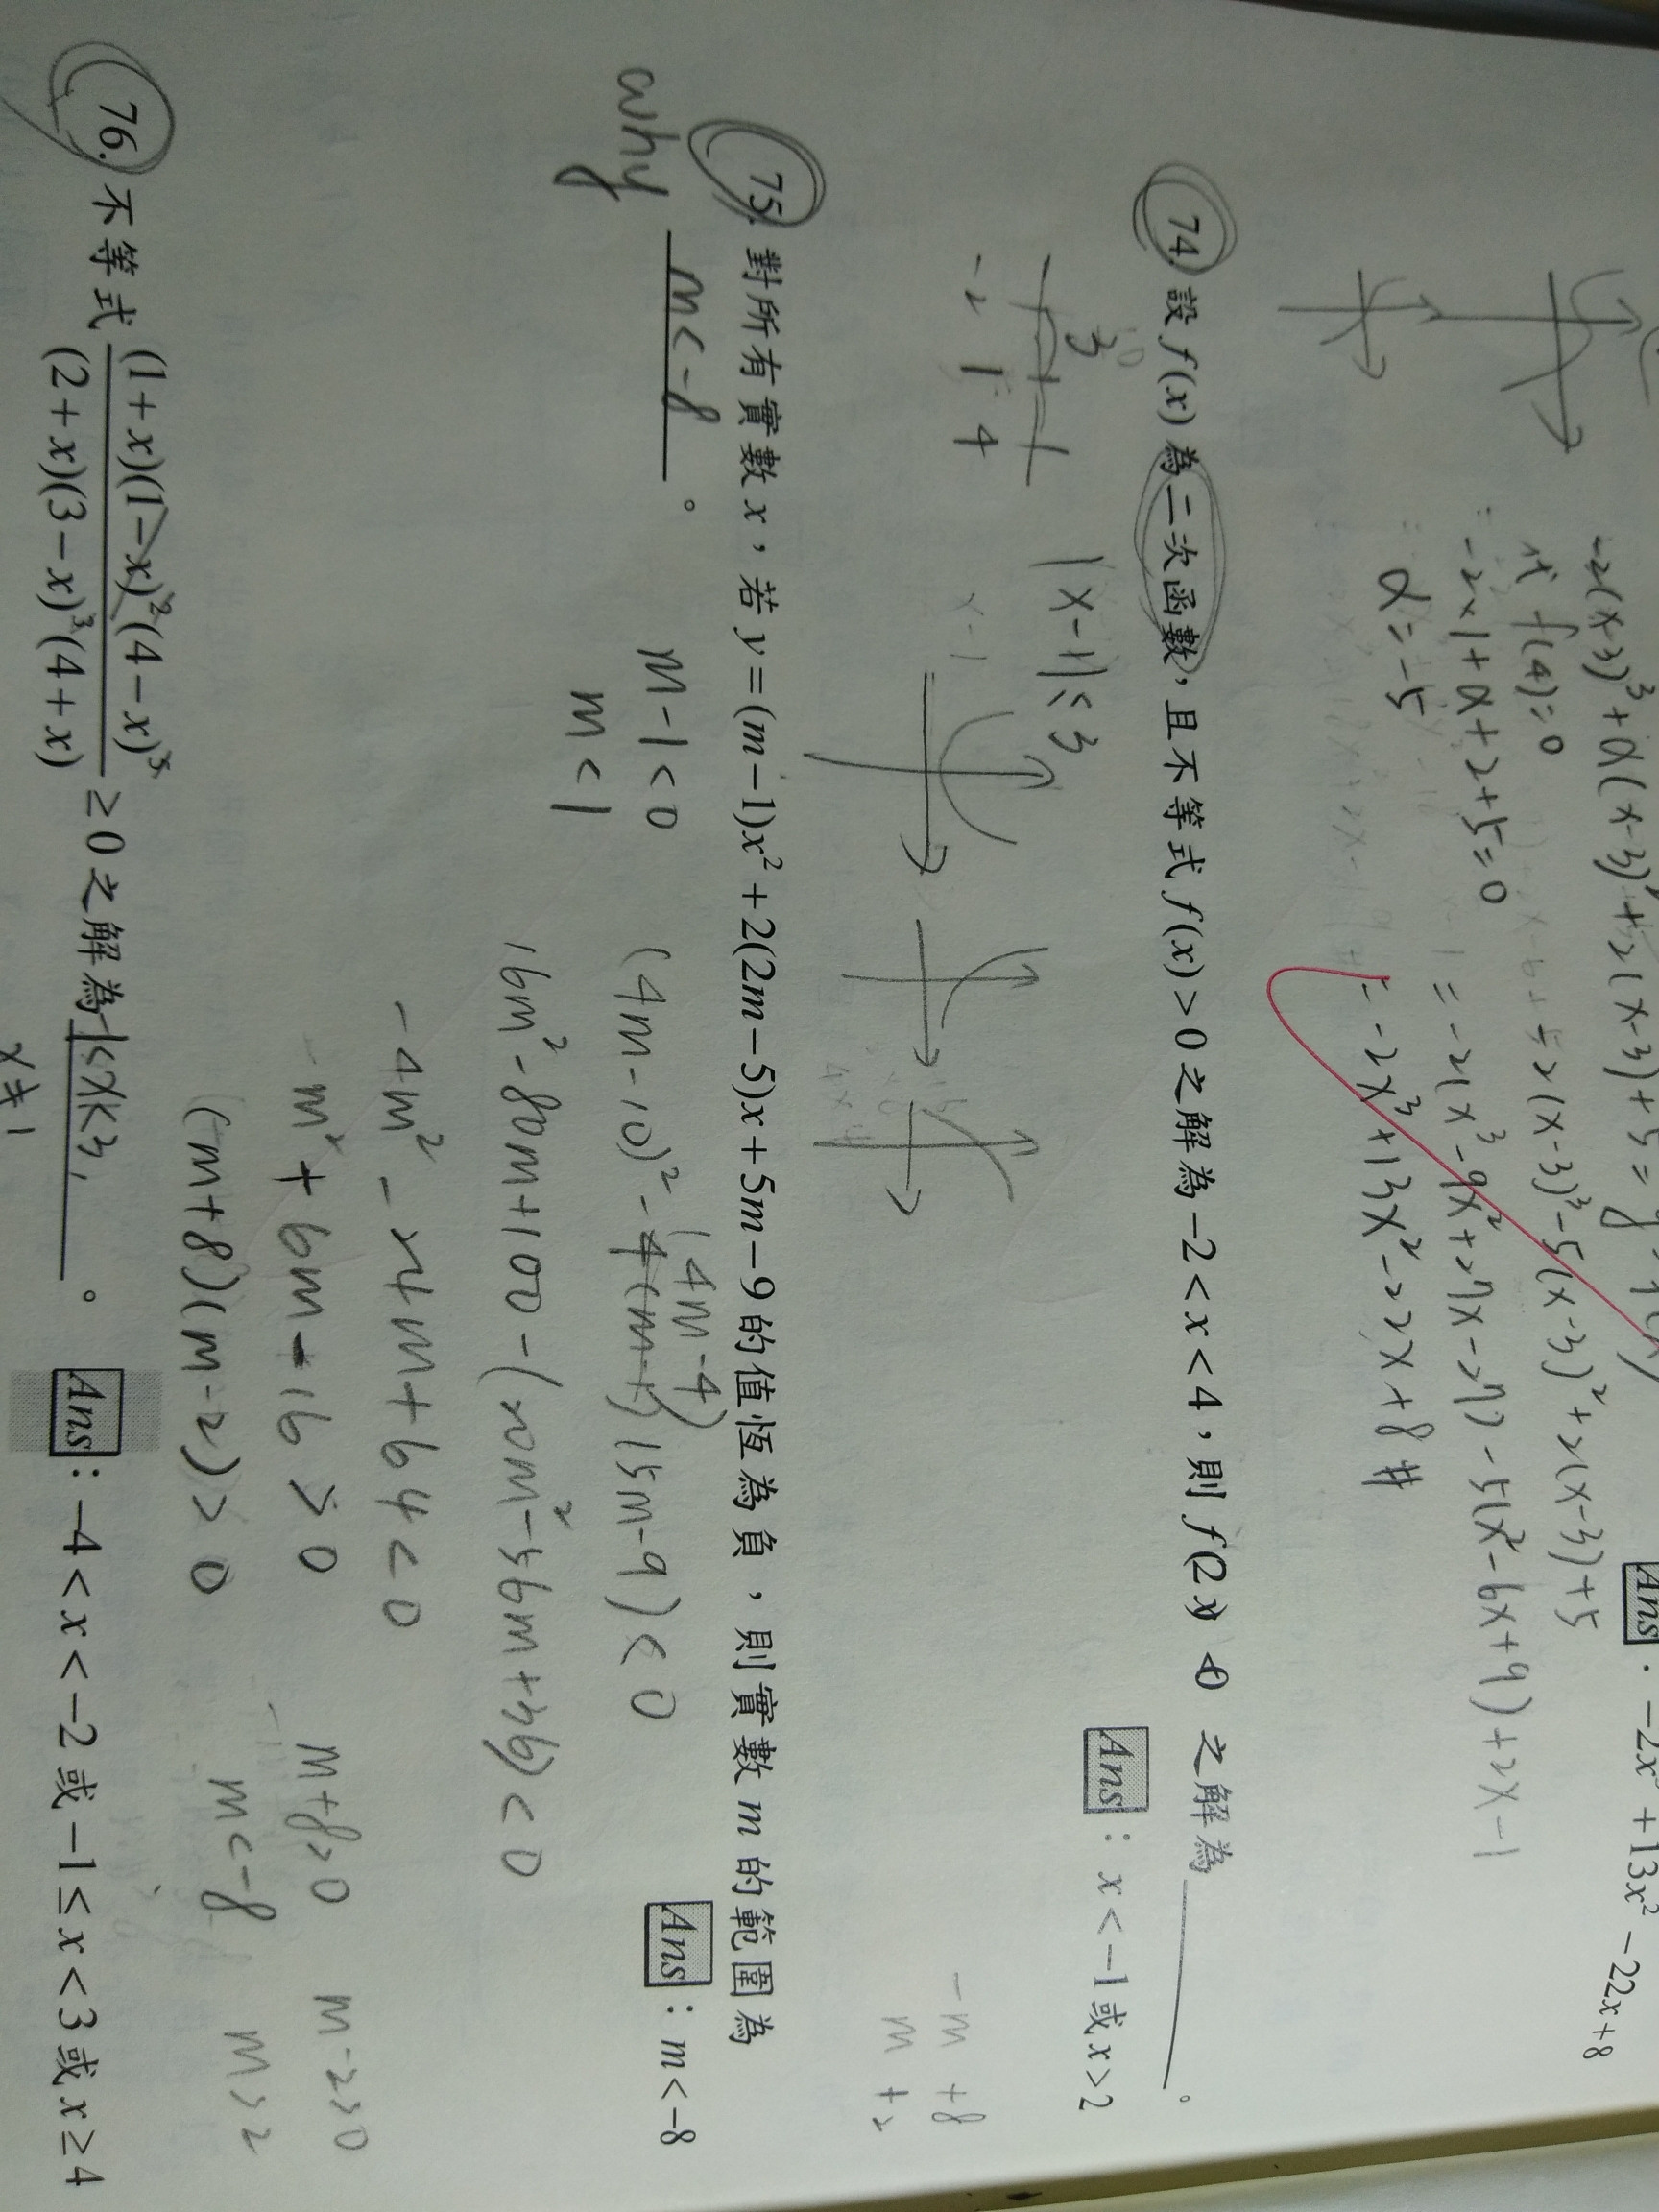 -2(x-3)³+α(x-3)²+2(x-3)+5=y
Ans : -2x³+13x²-22x+8
f(4)=0
-2x1+α+2+5=0
α=-5
-2(x-3)³-5(x-3)²+2(x-3)+5
=-2(x³-9x²+27x-27)-5(x²-6x+9)+2x-1
=-2x³+13x²-22x+8 #
74. 設 f(x) 為二次函數，且不等式 f(x)>0 之解為 -2<x<4，則 f(2x)<0 之解為＿＿＿。
Ans : x<-1 或 x>2
3
-2 1 4
|x-1|<3
x-1
-m +8
m +2
75. 對所有實數 x，若 y=(m-1)x²+2(2m-5)x+5m-9 的值恆為負，則實數 m 的範圍為
m<-8。
Ans : m<-8
why
m-1<0
m<1
(4m-10)²-4(m-1)(5m-9)<0
(4m-4)
16m²-80m+100-(20m²-56m+36)<0
-4m²-24m+64<0
m²+6m-16>0
(m+8)(m-2)>0
m+8>0 m-2>0
m<-8 m>2
76. 不等式 (1+x)(1-x)²(4-x)³/(2+x)(3-x)³(4+x) ≥0 之解為 -1≤x<3,。
x≠1
Ans : -4<x<-2 或 -1≤x<3 或 x≥4